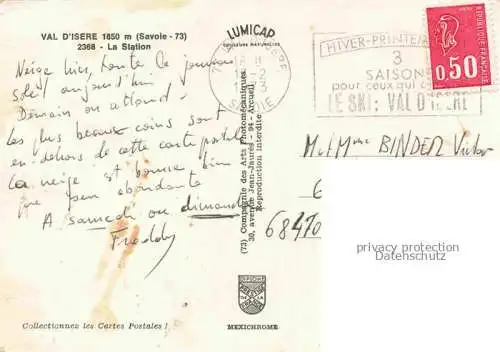 VAL D'ISERE 1850 m (Savoie - 73)
2368 - La Station
LUMICAP
COULEURS NATURELLES
Neige hier, toute la journée
soleil aujourd'hui
Demain on attend.
les plus beaux coins sont
en dehors de cette carte postale
la neige est bonne bien
que peu abondante
A samedi ou dimanche
Freddy
(73) Compagnie des Arts Photomécaniques
30, avenue Jean-Jaurès - 94 - Arcueil
Reproduction interdite
SAVOIE
HIVER-PRINTEMPS
3
SAISONS
pour ceux qui
LE SKI: VAL D'ISERE
0,50
REPUBLIQUE FRANÇAISE
M et Mme BINDER Victor
6
68470
privacy protection
akpool.de
MEXICHROME
Collectionnez les Cartes Postales !